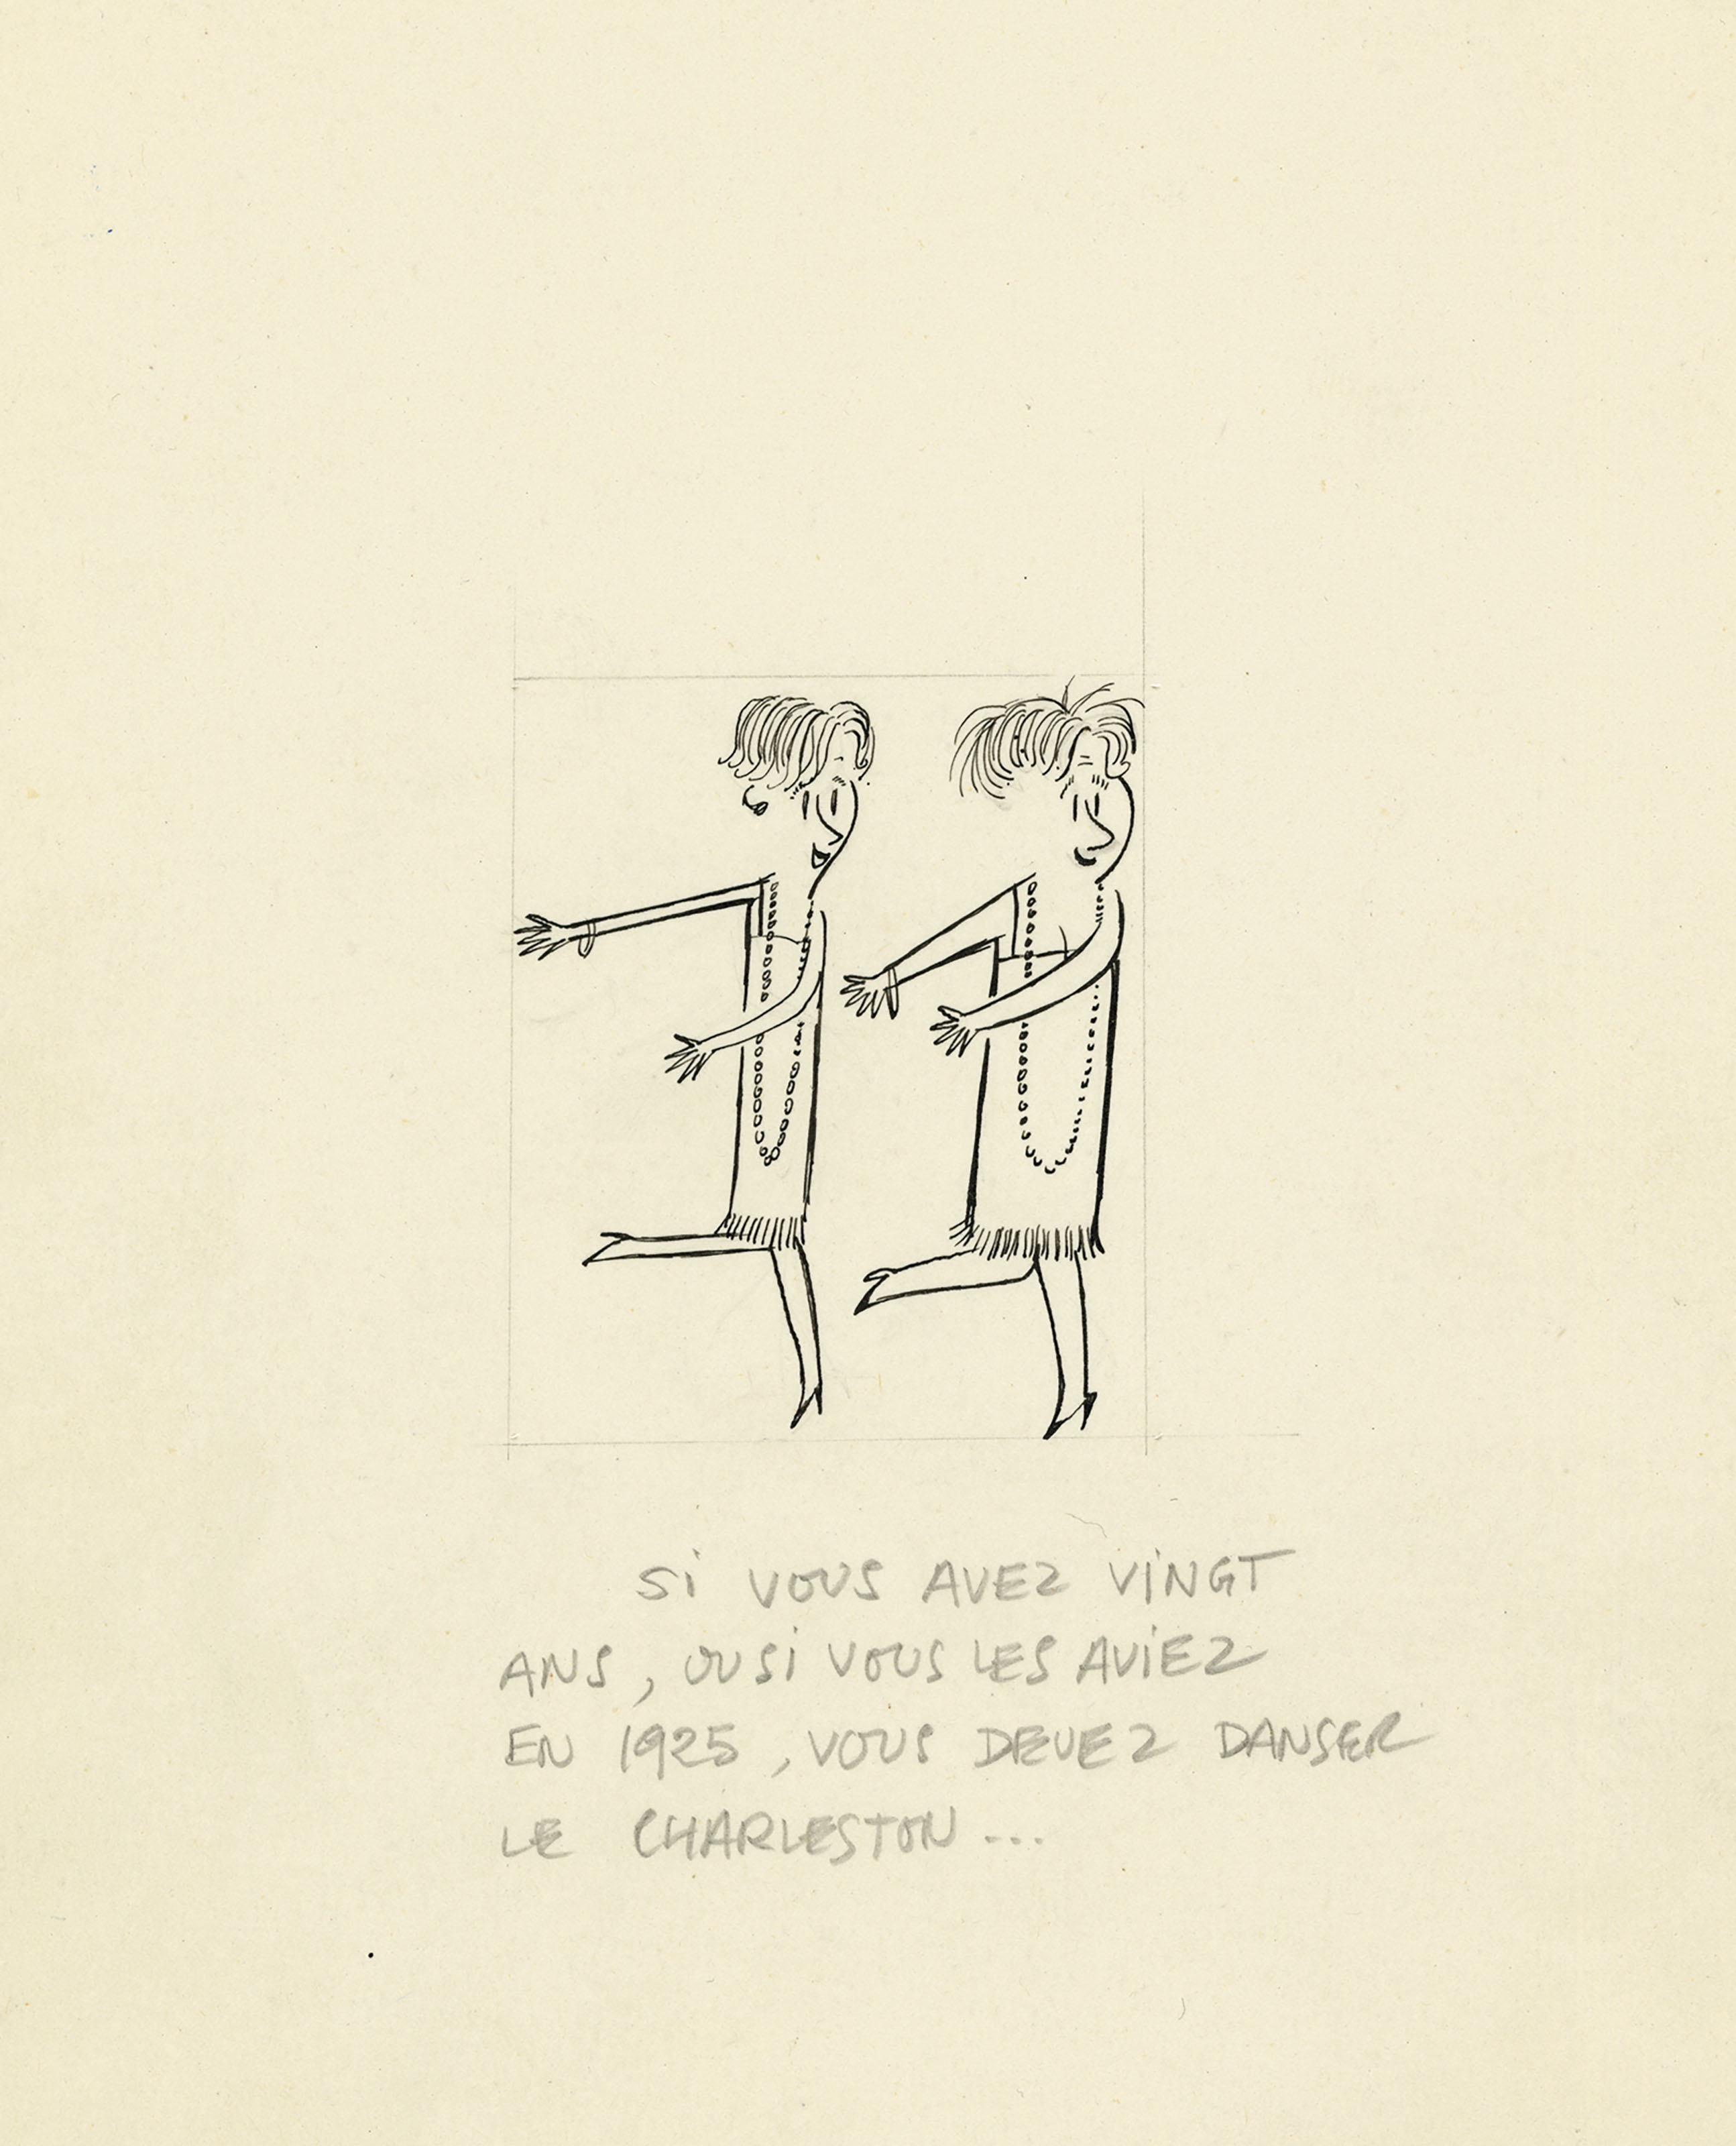 Si VOUS AVEZ ViNGT
ANS, OU Si VOUS LES AViEZ
EN 1925, VOUS DEVEZ DANSER
LE CHARLESTON...